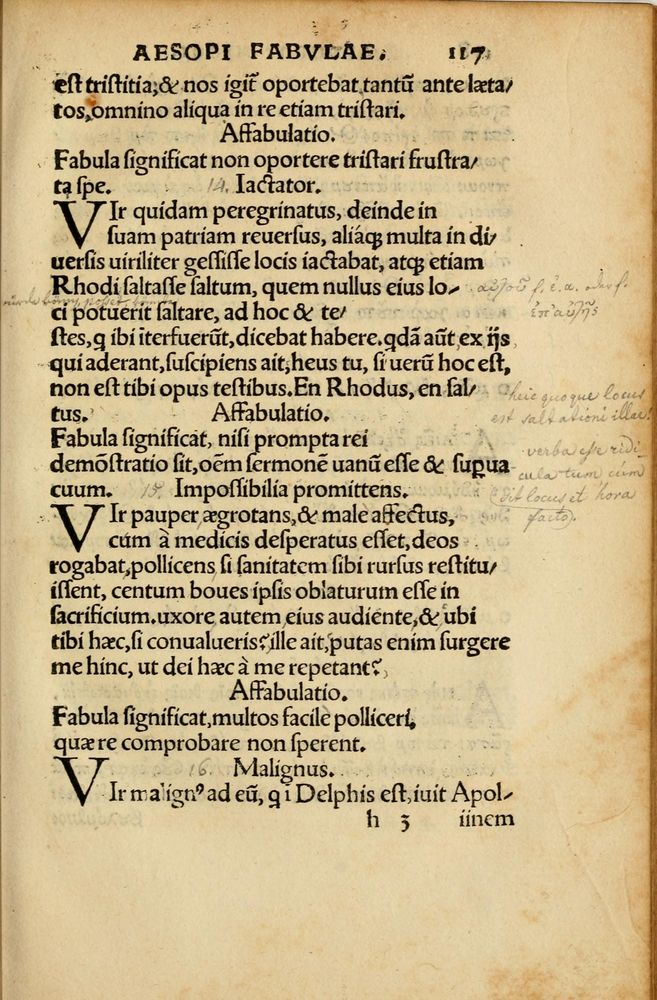 AESOPI FABVLAE. 117
est tristitia;& nos igit̃ oportebat tantũ ante læta/
tos, omnino aliqua in re etiam tristari.
Affabulatio.
Fabula significat non oportere tristari frustra/
ta spe. 14. Iactator.
VIr quidam peregrinatus, deinde in
suam patriam reuersus, aliáqꝫ multa in di/
uersis uiriliter gessisse locis iactabat, atqꝫ etiam
Rhodi saltasse saltum, quem nullus eius lo/
ci potuerit saltare, ad hoc & te/
stes, q ibi ĩterfuerũt, dicebat habere. qdã aũt ex ijs
qui aderant, suscipiens ait, heus tu, si uerũ hoc est,
non est tibi opus testibus. En Rhodus, en sal/
tus. Affabulatio.
Fabula significat, nisi prompta rei
demõstratio sit, oẽm sermonẽ uanũ esse & supua
cuum. 15. Impossibilia promittens.
VIr pauper ægrotans, & male affectus,
cùm à medicis desperatus esset, deos
rogabat, pollicens si sanitatem sibi rursus restitu/
issent, centum boues ipsis oblaturum esse in
sacrificium. uxore autem eius audiente, & ubi
tibi hæc, si conualueris? ille ait, putas enim surgere
me hinc, ut dei hæc à me repetant?
Affabulatio.
Fabula significat, multos facile polliceri,
quæ re comprobare non sperent.
16. Malignus.
VIr malignꝰ ad eũ, qi Delphis est, iuit Apol/
h 3 iinem
heic quoque locus
est saltationi illae!
verba esse ridi
cula tum cùm
sit locus et hora
facto).